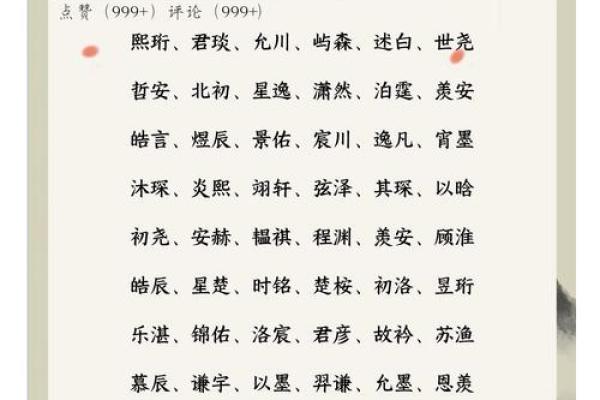 点赞（999+）评论（999+）
熙珩、君琰、允川、屿森、述白、世尧
哲安、北初、星逸、潇然、泊霆、羡安
皓言、煜辰、景佑、宸川、逸凡、宵墨
沐琛、炎熙、翊轩、弦泽、其琛、以晗
初尧、安赫、韫祺、程渊、羡安、顾淮
皓辰、星楚、时铭、楚桉、初洛、昱珩
乐湛、锦佑、洛宸、君彦、故衿、苏渔
慕辰、谦宇、以墨、羿谦、允墨、恩羡